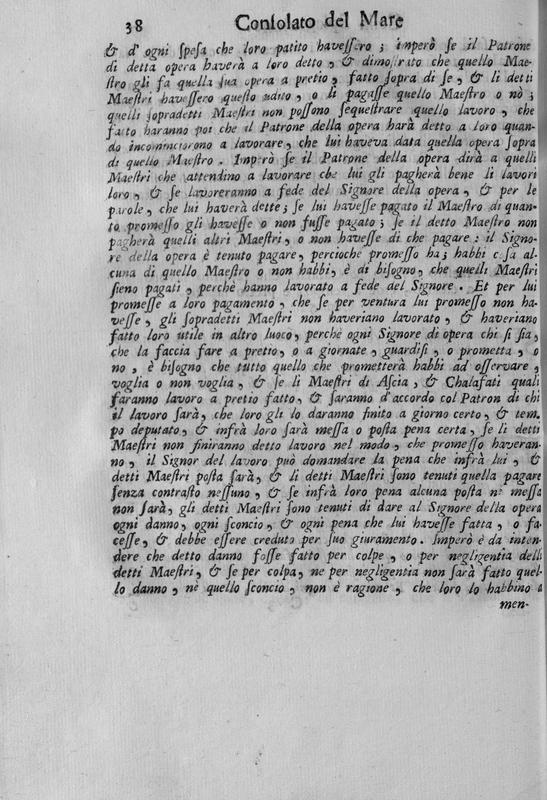 38 Consolato del Mare
& d' ogni ſpeſa che loro patito haveſſero ; imperò ſe il Patrone
di detta opera haverà a loro detto , & dimoſtrato che quello Mae-
ſtro gli fa quella ſua opera a pretio , fatto ſopra di ſe , & li detti
Maeſtri haveſſero queſto udito , o li pagaſſe quello Maeſtro o nò ;
quelli ſopradetti Maeſtri non poſſono ſequeſtrare quello lavoro , che
fatto haranno poi che il Patrone della opera harà detto a loro quan-
do incominciorono a lavorare , che lui haveva data quella opera ſopra
di quello Maeſtro . Imperò ſe il Patrone della opera dirà a quelli
Maeſtri che attendino a lavorare che lui gli pagherà bene li lavori
loro , & ſe lavoreranno a fede del Signore della opera , & per le
parole , che lui haverà dette ; ſe lui haveſſe pagato il Maeſtro di quan-
to promeſſo gli haveſſe o non fuſſe pagato ; ſe il detto Maeſtro non
pagherà quelli altri Maeſtri , o non haveſſe di che pagare : il Signo-
re della opera è tenuto pagare , percioche promeſſo ha ; habbi coſa al-
cuna di quello Maeſtro o non habbi , è di biſogno , che quelli Maeſtri
ſieno pagati , perchè hanno lavorato a fede del Signore . Et per lui
promeſſe a loro pagamento , che ſe per ventura lui promeſſo non ha-
veſſe , gli ſopradetti Maeſtri non haveriano lavorato , & haveriano
fatto loro utile in altro luoco , perchè ogni Signore di opera chi ſi ſia ,
che la faccia fare a pretto , o a giornate , guardiſi , o prometta , o
no , è biſogno che tutto quello che prometterà habbi ad oſſervare ,
voglia o non voglia , & ſe li Maeſtri di Aſcia , & Chalafati quali
faranno lavoro a pretio fatto , & ſaranno d'accordo col Patron di chi
il lavoro ſarà , che loro gli lo daranno finito a giorno certo , & tem-
po deputato , & infrà loro ſarà meſſa o poſta pena certa , ſe li detti
Maeſtri non finiranno detto lavoro nel modo , che promeſſo haveran-
no , il Signor del lavoro può domandare la pena che infrà lui , &
detti Maeſtri poſta ſarà , & li detti Maeſtri ſono tenuti quella pagare
ſenza contraſto neſſuno , & ſe infrà loro pena alcuna poſta nè meſſa
non ſarà , gli detti Maeſtri ſono tenuti di dare al Signore della opera
ogni danno , ogni ſconcio , & ogni pena che lui haveſſe fatta , o fa-
ceſſe , & debbe eſſere creduto per ſuo giuramento . Imperò è da inten-
dere che detto danno foſſe fatto per colpe , o per negligentia delli
detti Maeſtri , & ſe per colpa , ne per negligentia non ſarà fatto quel-
lo danno , nè quello ſconcio , non è ragione , che loro lo habbino a
men-